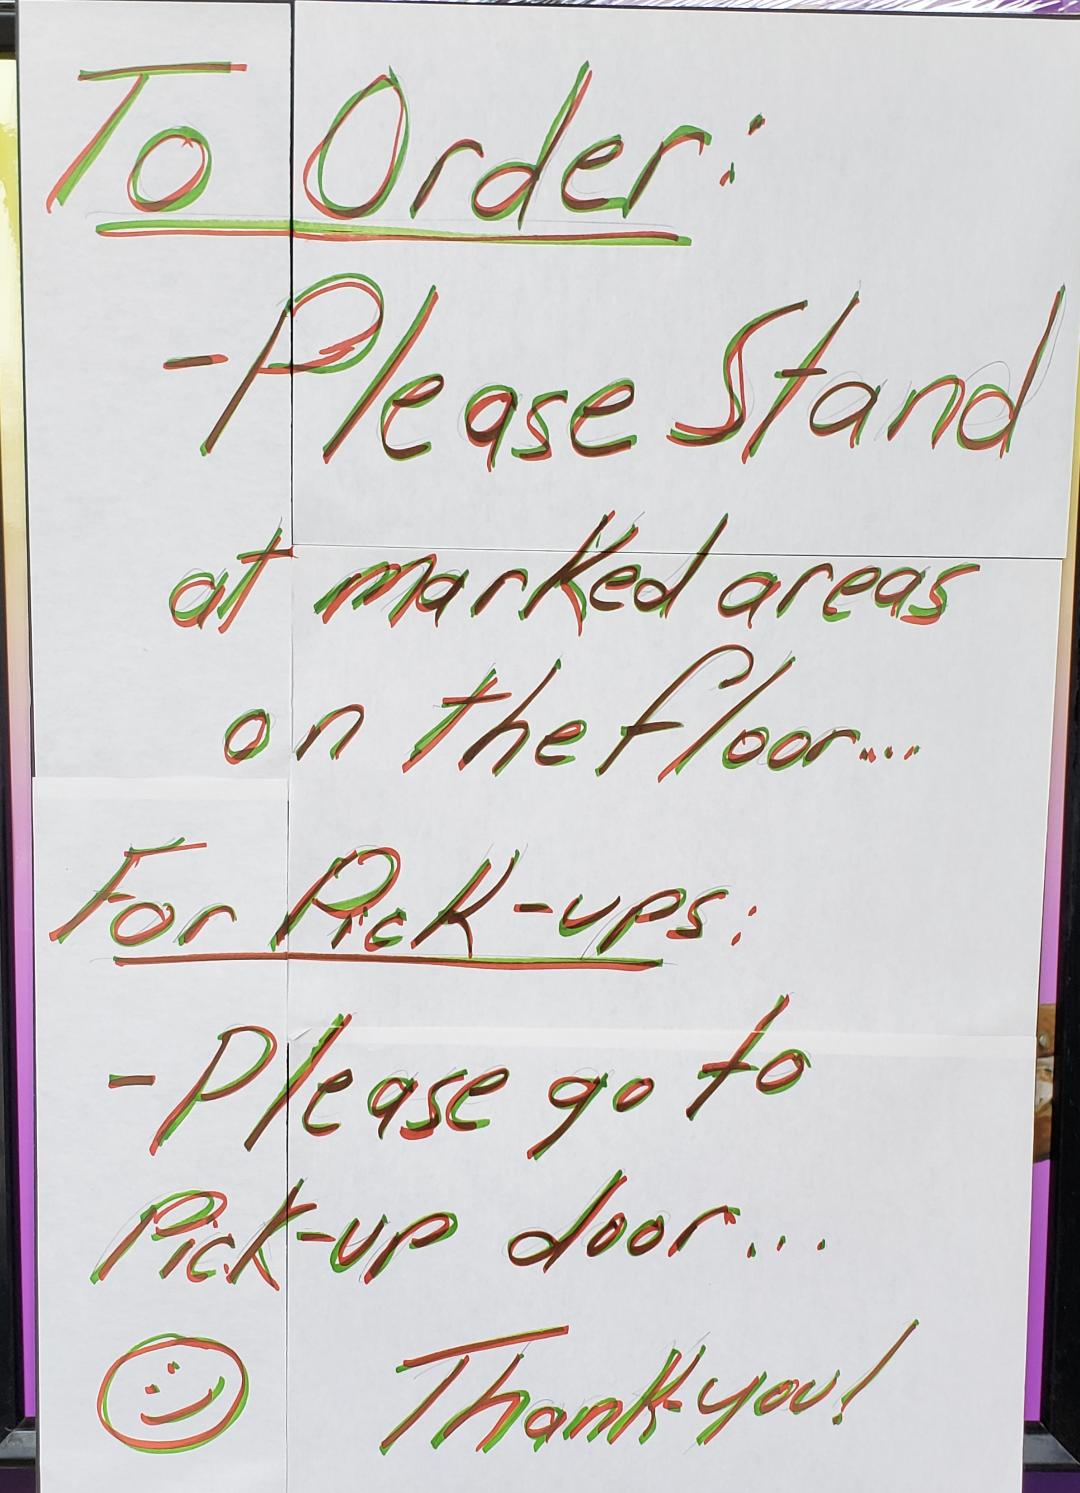 To Order:
-Please Stand
at marked areas
on the floor...
For Pick-ups:
-Please go to
Pick-up door...
Thank you!